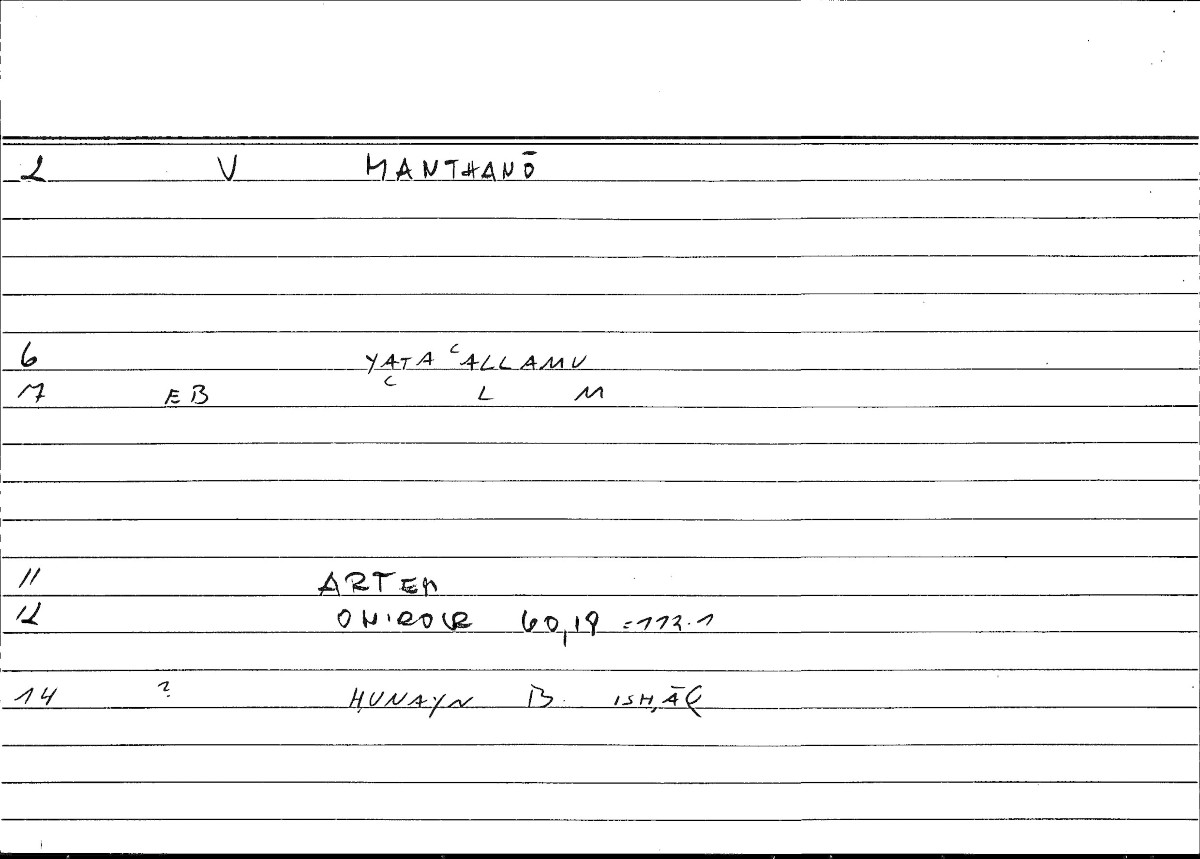 2 V MANTHANŌ
6 YATA ʿALLAMU
7 EB ʿ L M
11 ARTEM
12 ONIROCR 60,19 = 112.1
14 ? ḤUNAYN B. ISḤĀQ